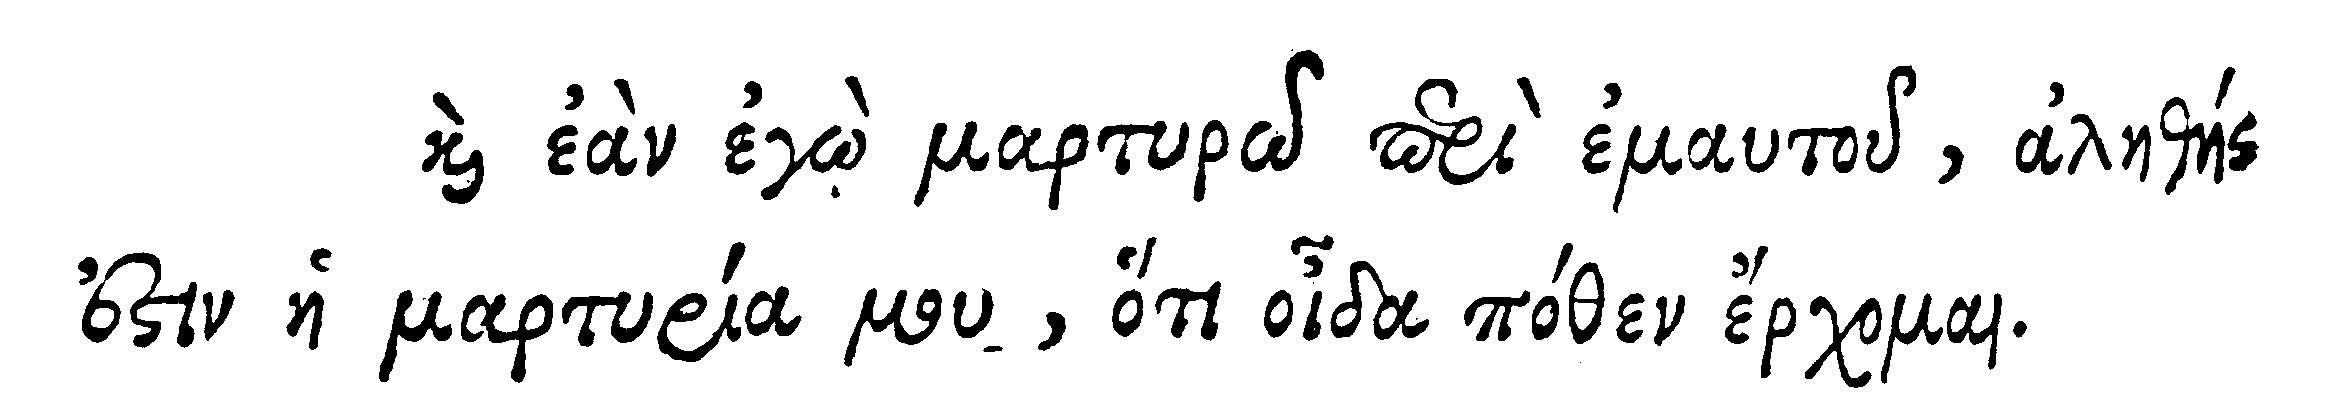 ϗ̀ ἐὰν ἐγὼ μαρτυρῶ περὶ ἐμαυτοῦ, ἀληθής
ἐστιν ἡ μαρτυρία μου, ὅτι οἶδα πόθεν ἔρχομαι.